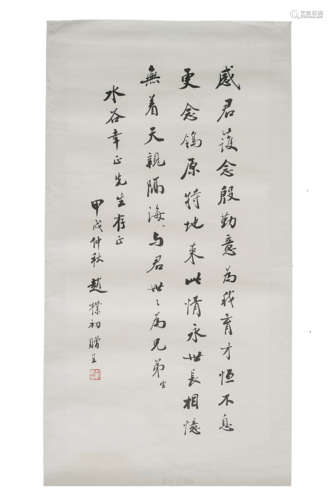 感君護念殷勤意為我育才恒不息
更念鴒原特地来此情永世長相憶
無着天親隔海、与君世々為兄弟
水谷幸正先生存正
甲戌仲秋趙樸初